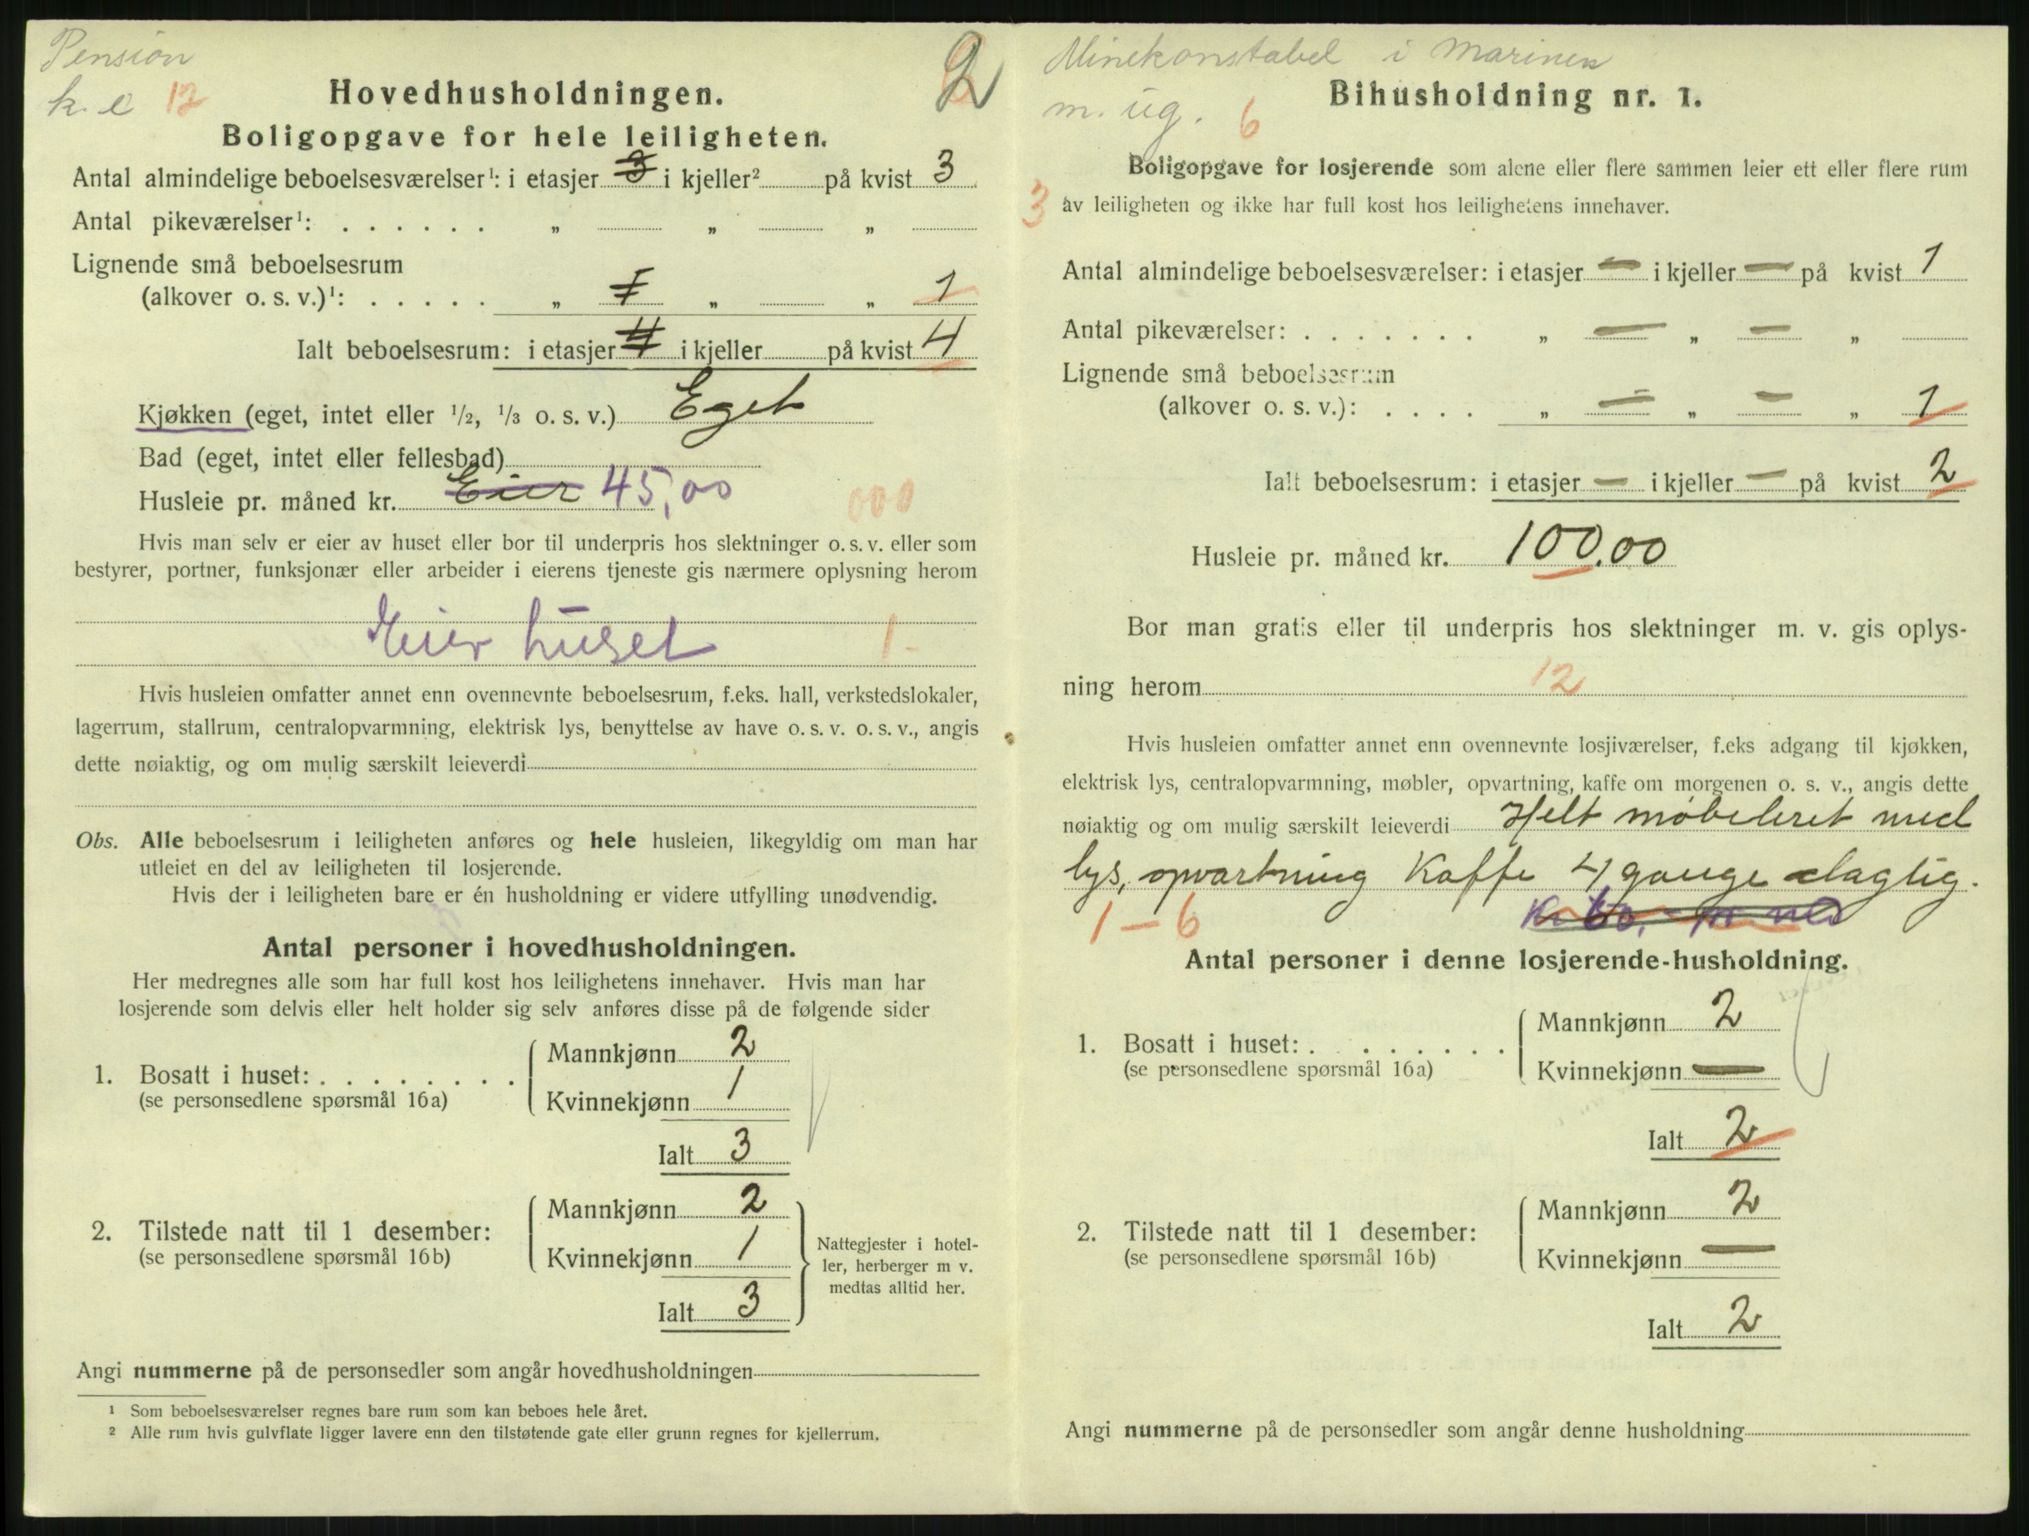 Pension
k. e 12
2
Hovedhusholdningen.
Boligopgave for hele leiligheten.
Antal almindelige beboelsesværelser¹: i etasjer 3 i kjeller² på kvist 3
Antal pikeværelser¹: . . . . . . „ „ „
Lignende små beboelsesrum
(alkover o. s. v.)¹: . . . . . „ 1 „ „ 1
Ialt beboelsesrum: i etasjer 4 i kjeller på kvist 4
Kjøkken (eget, intet eller 1/2, 1/3 o. s. v.) Eget
Bad (eget, intet eller fellesbad)
Husleie pr. måned kr. Eier 45,00
000
Hvis man selv er eier av huset eller bor til underpris hos slektninger o. s. v. eller som
bestyrer, portner, funksjonær eller arbeider i eierens tjeneste gis nærmere oplysning herom
Eier huset 1-
Hvis husleien omfatter annet enn ovennevnte beboelsesrum, f.eks. hall, verkstedslokaler,
lagerrum, stallrum, centralopvarmning, elektrisk lys, benyttelse av have o. s. v. o. s. v., angis
dette nøiaktig, og om mulig særskilt leieverdi
Obs. Alle beboelsesrum i leiligheten anføres og hele husleien, likegyldig om man har
utleiet en del av leiligheten til losjerende.
Hvis der i leiligheten bare er én husholdning er videre utfylling unødvendig.
Antal personer i hovedhusholdningen.
Her medregnes alle som har full kost hos leilighetens innehaver. Hvis man har
losjerende som delvis eller helt holder sig selv anføres disse på de følgende sider
1. Bosatt i huset: . . . . . . . .
(se personsedlene spørsmål 16a)
Mannkjønn 2
Kvinnekjønn 1
Ialt 3
2. Tilstede natt til 1 desember:
(se personsedlene spørsmål 16b)
Mannkjønn 2
Kvinnekjønn 1
Ialt 3
Nattegjester i hotel-
ler, herberger m v.
medtas alltid her.
Angi nummerne på de personsedler som angår hovedhusholdningen
¹ Som beboelsesværelser regnes bare rum som kan beboes hele året.
² Alle rum hvis gulvflate ligger lavere enn den tilstøtende gate eller grunn regnes for kjellerrum.
Minekonstabel i Marinen
m. ug. 6
Bihusholdning nr. 1.
3
Boligopgave for losjerende som alene eller flere sammen leier ett eller flere rum
av leiligheten og ikke har full kost hos leilighetens innehaver.
Antal almindelige beboelsesværelser: i etasjer — i kjeller — på kvist 1
Antal pikeværelser: . . . . . . . „ — „ — „
Lignende små beboelsesrum
(alkover o. s. v.): . . . . „ — „ — „ 1
Ialt beboelsesrum: i etasjer — i kjeller — på kvist 2
Husleie pr. måned kr. 100.00
Bor man gratis eller til underpris hos slektninger m. v. gis oplys-
ning herom 12
Hvis husleien omfatter annet enn ovennevnte losjiværelser, f.eks adgang til kjøkken,
elektrisk lys, centralopvarmning, møbler, opvartning, kaffe om morgenen o. s. v., angis dette
nøiaktig og om mulig særskilt leieverdi Helt møbeleret med
lys, opvartning Kaffe 4 gange daglig.
1 – 6 Kr 60,-
Antal personer i denne losjerende-husholdning.
1. Bosatt i huset: . . . . . . . .
(se personsedlene spørsmål 16a)
Mannkjønn 2
Kvinnekjønn —
Ialt 2
2. Tilstede natt til 1 desember:
(se personsedlene spørsmål 16b)
Mannkjønn 2
Kvinnekjønn —
Ialt 2
Angi nummerne på de personsedler som angår denne husholdning